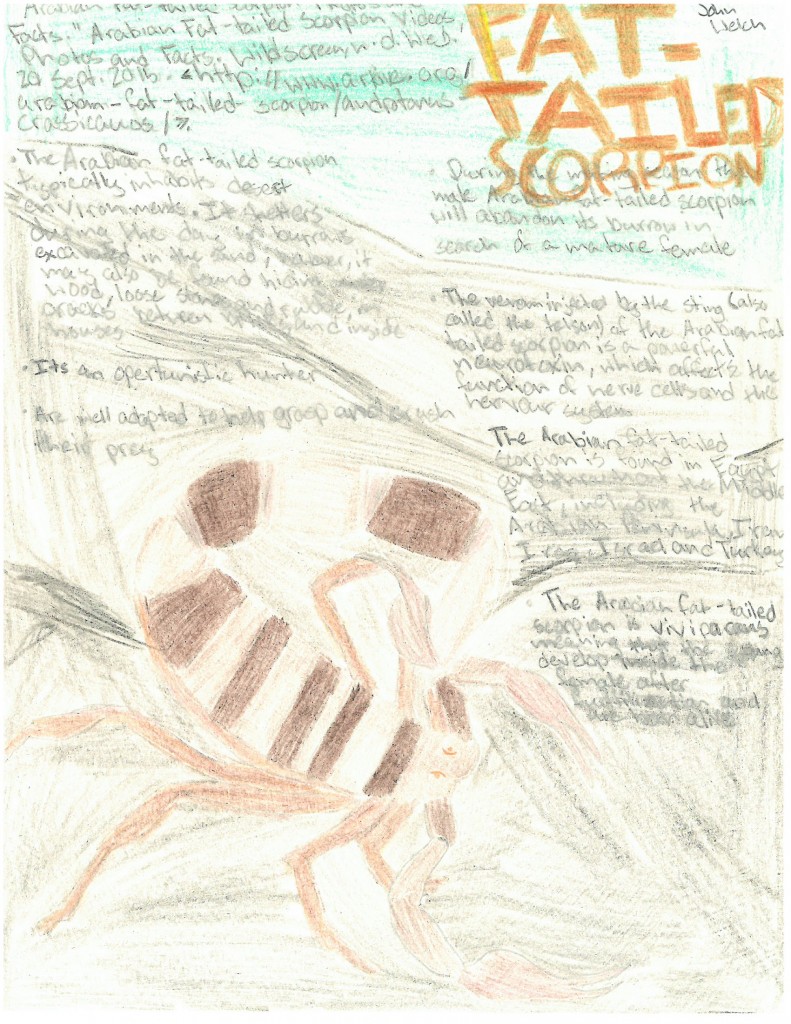 Arabian Fat-tailed Scorpion
Facts." Arabian Fat-tailed Scorpion Videos,
Photos and Facts. Wildscreen, n.d. Web.
20 Sept. 2016. <http://www.arkive.org/
arabian-fat-tailed-scorpion/androtonus
crassicauos/>.
John
Welch
FAT-
TAILED
SCORPION
• The Arabian fat-tailed scorpion
typically inhabits desert
environments. It shelters
during the day in burrows
excavated in the sand, however, it
may also be found hiding
wood, loose stones and rubble, in
cracks between and inside
houses
• Its an opertunistic hunter
• Are well adapted to help grasp and crush
their prey
• During the mating season the
male Arabian fat-tailed scorpion
will abandon its burrow in
search of a mature female
• The venom injected by the sting (also
called the telson) of the Arabian fat
tailed scorpion is a powerful
neurotoxin, which affects the
function of nerve cells and the
system
The Arabian fat-tailed
scorpion is found in Egypt
and throughout the Middle
East, including the
Arabian Peninsula, Iran
Iraq, Israel and Turkey
• The Arabian fat-tailed
scorpion is viviparous
meaning that the young
develop inside the
female after
and
are born alive